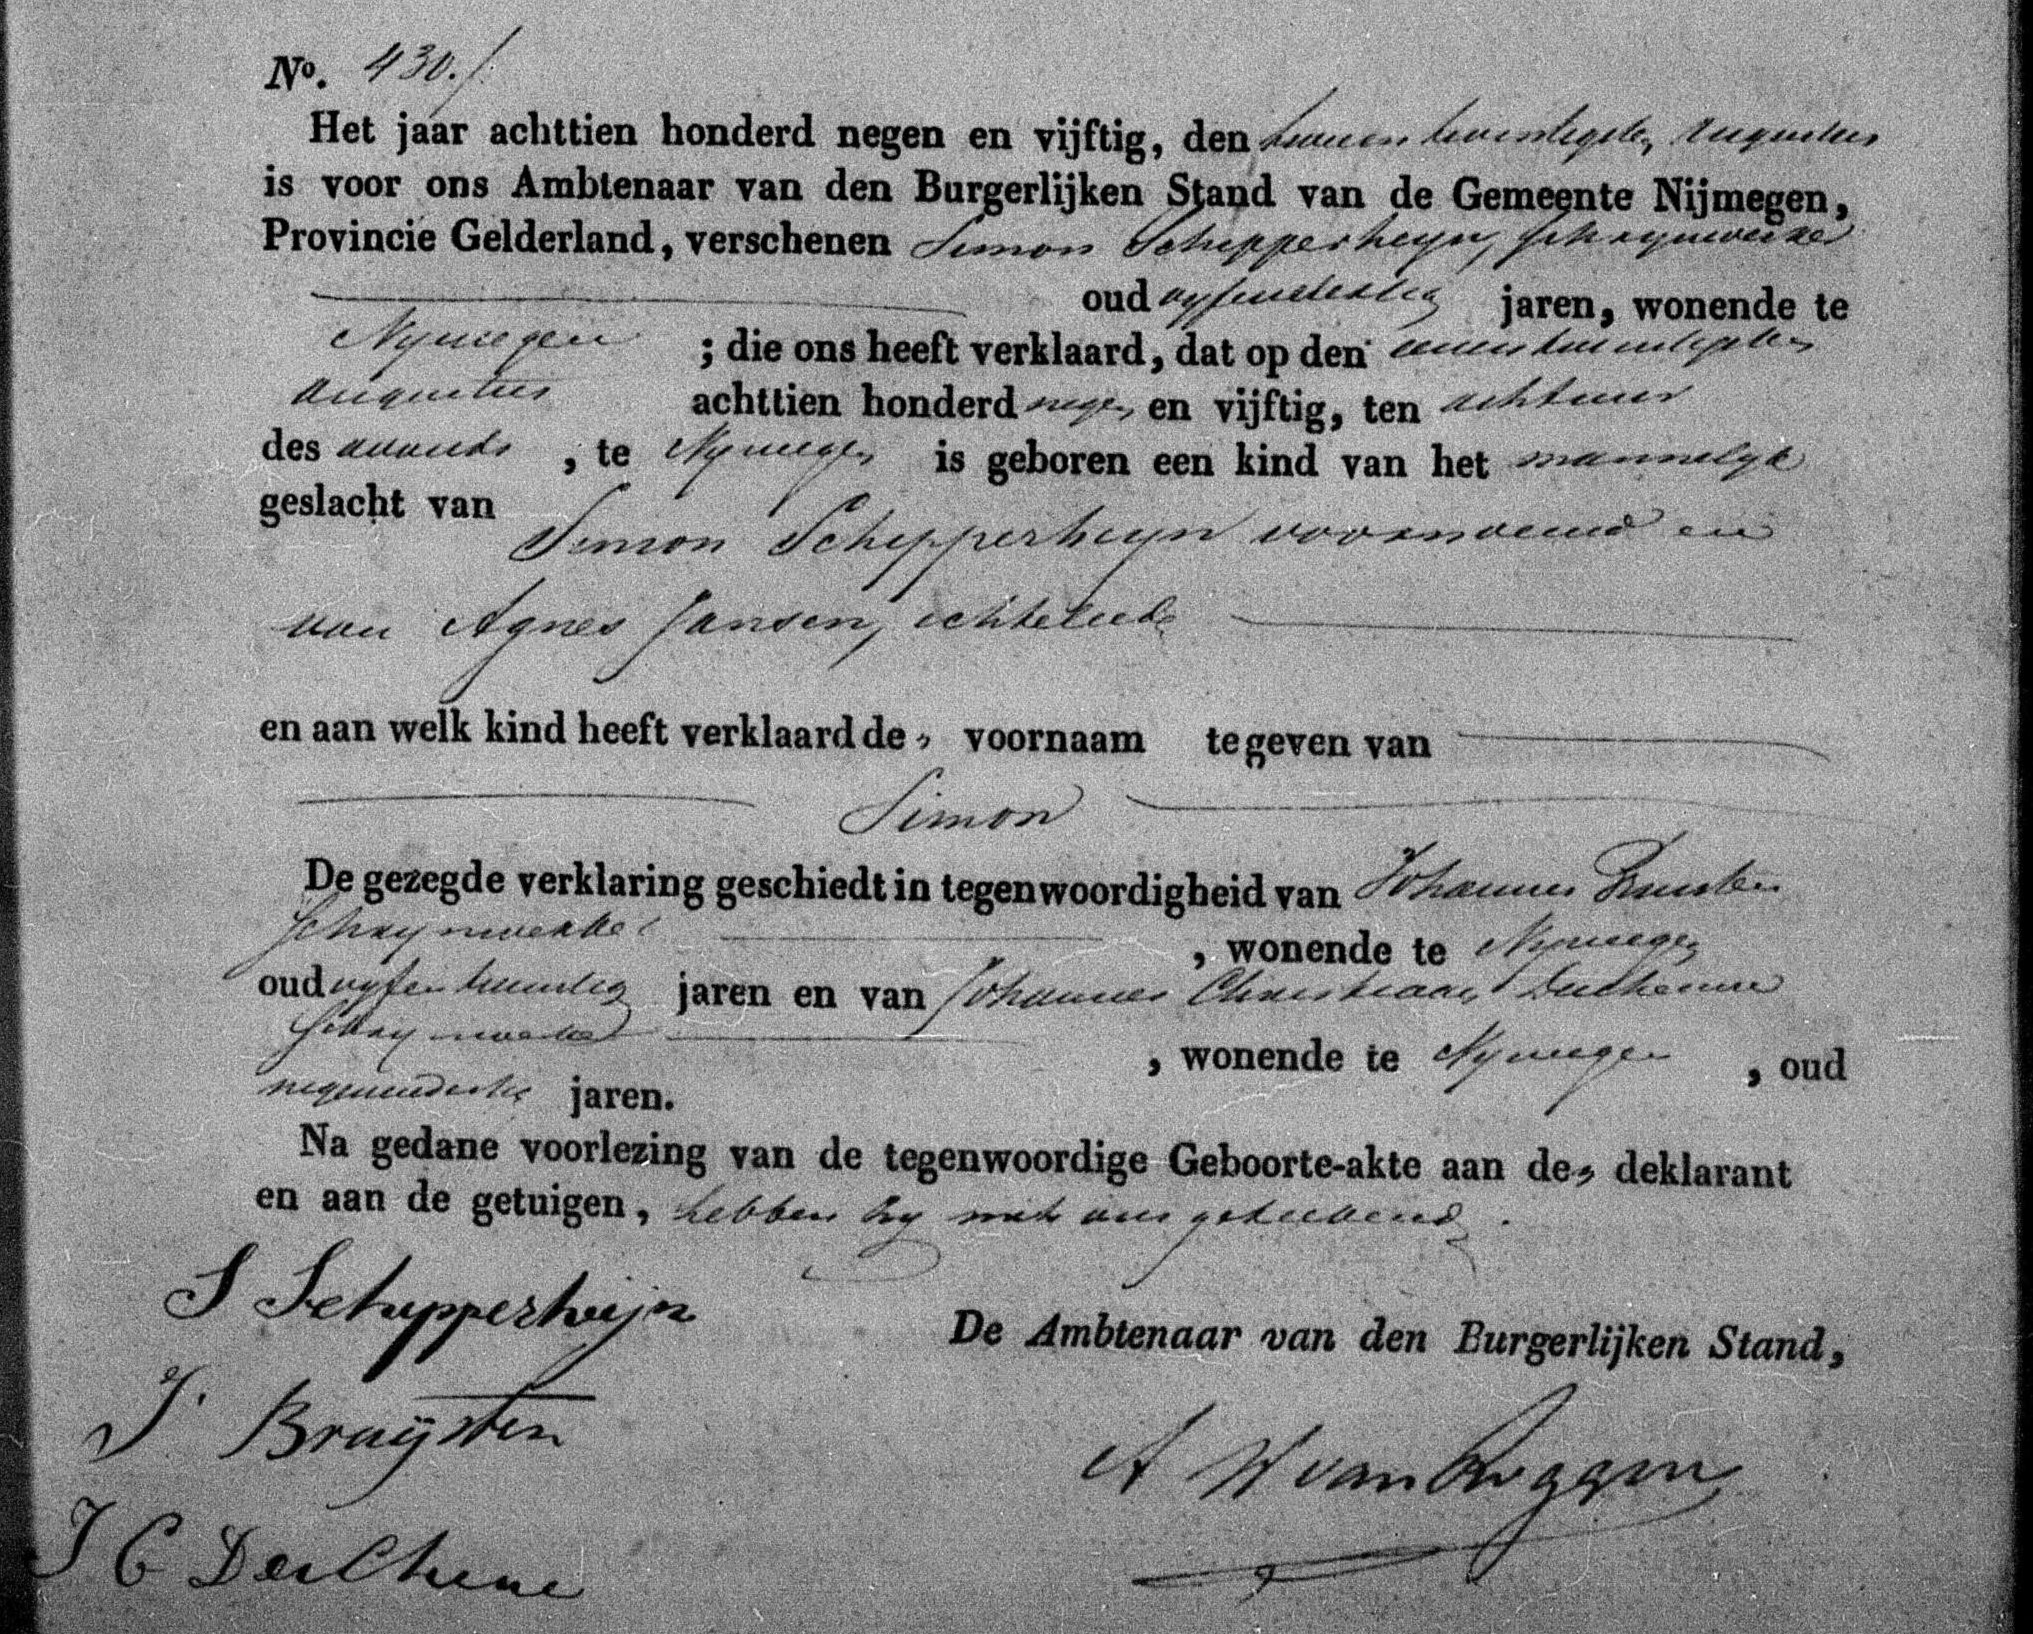 No. 430.
Het jaar achttien honderd negen en vijftig, den tweeentwintigsten Augustus
is voor ons Ambtenaar van den Burgerlijken Stand van de Gemeente Nijmegen,
Provincie Gelderland, verschenen Simon Schipperheyn, schrynwerker
oud vyfendertig jaren, wonende te
Nymegen ; die ons heeft verklaard, dat op den eenentwintigsten
Augustus achttien honderd negen en vijftig, ten acht uur
des avonds , te Nymegen is geboren een kind van het mannelyk
geslacht van
Simon Schipperheyn voornoemd en
van Agnes Jansen, echtelieden
en aan welk kind heeft verklaard de voornaam te geven van
Simon
De gezegde verklaring geschiedt in tegenwoordigheid van Johannes
Schrynwerker , wonende te Nymegen
oud vyfentwintig jaren en van Johannes Christiaan Duchenne
Schrynwerker , wonende te Nymegen , oud
negenendertig jaren.
Na gedane voorlezing van de tegenwoordige Geboorte-akte aan de deklarant
en aan de getuigen, hebben zy met ons geteekend.
S Schipperheijn
De Ambtenaar van den Burgerlijken Stand,
J Bruijsten
A W van
J C DuChene